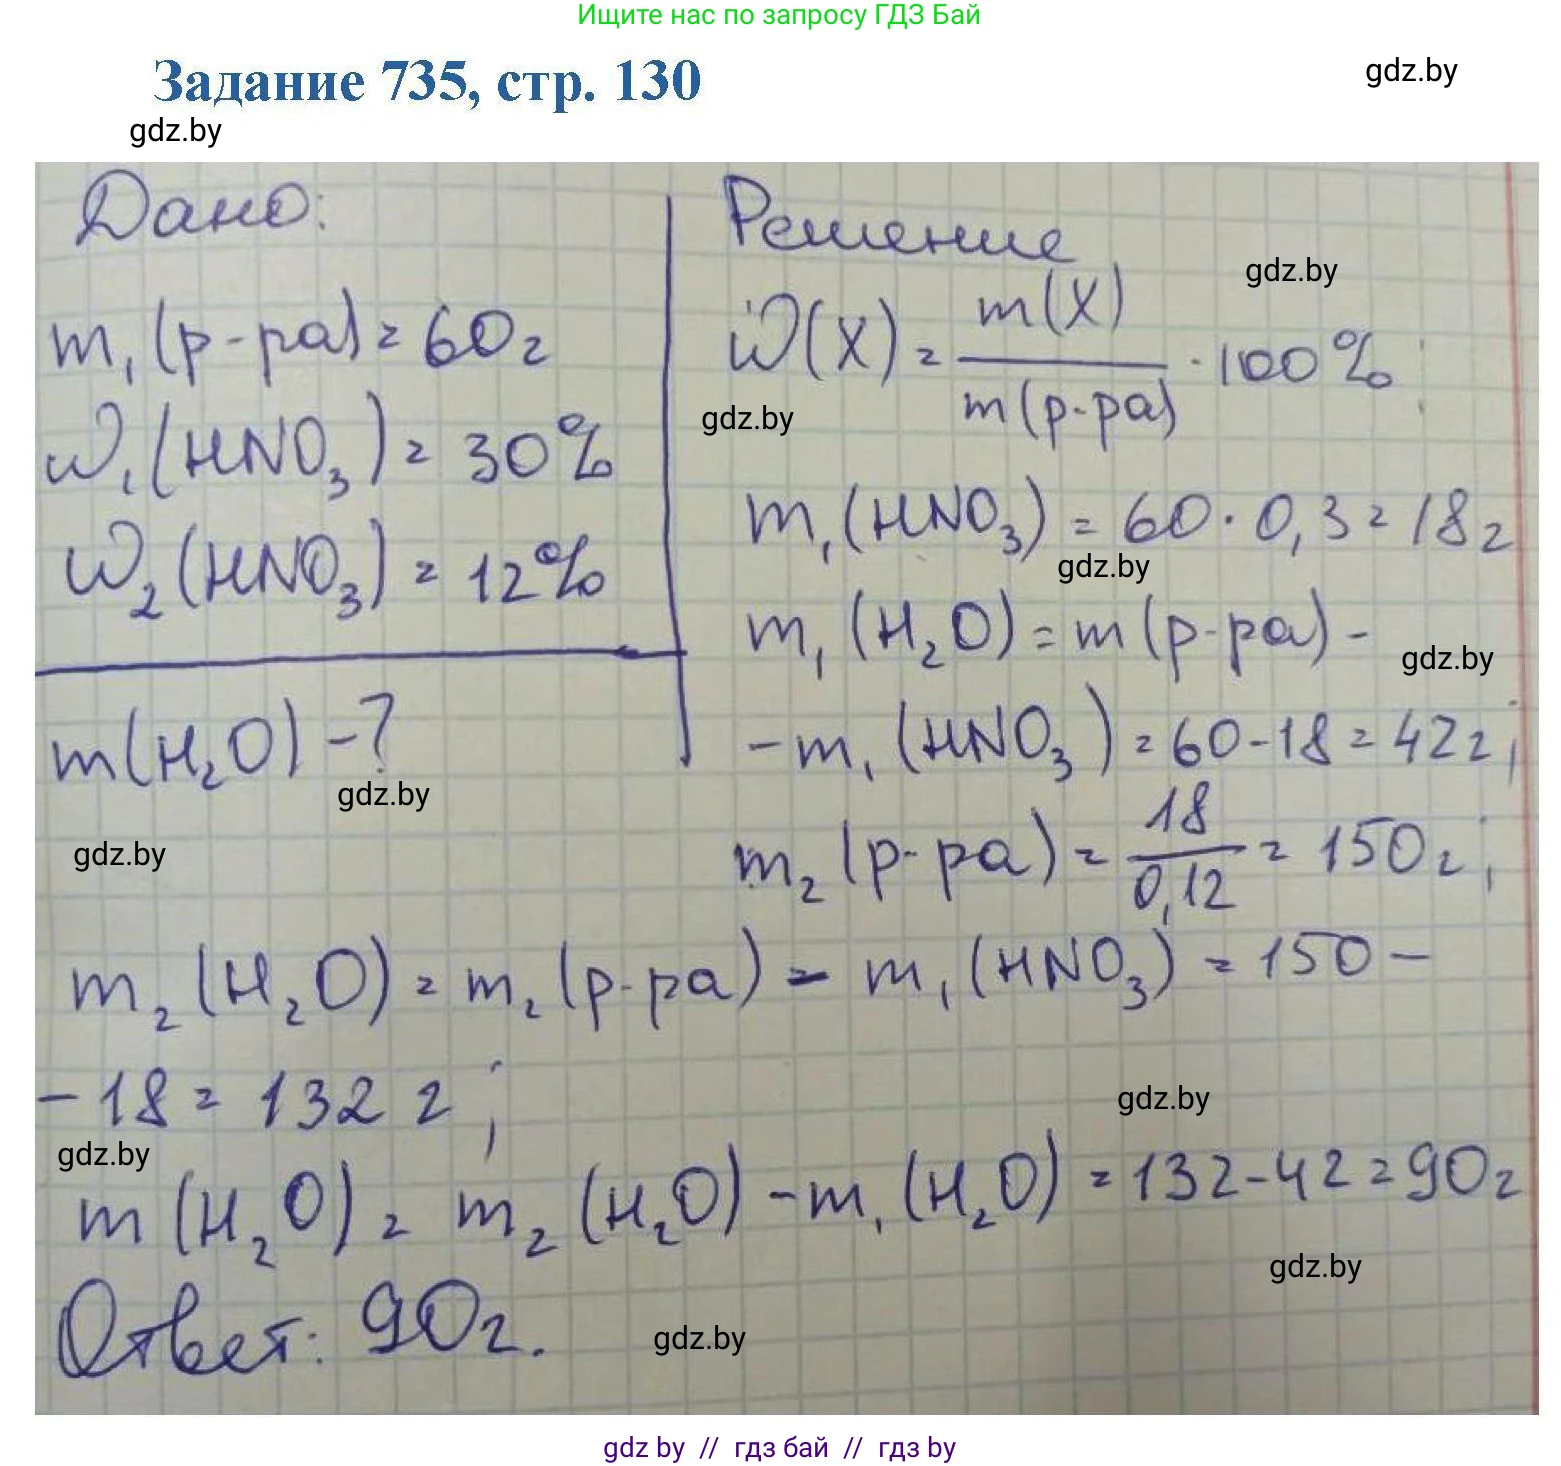 Ищите нас по запросу ГДЗ Бай
Задание 735, стр. 130
gdz.by
gdz.by
Дано:
m₁(р-ра) = 60 г
W₁(HNO₃) = 30%
W₂(HNO₃) = 12%
m(H₂O) - ?
gdz.by
gdz.by
Решение
gdz.by
W(X) = m(X) / m(р-ра) · 100%;
gdz.by
m₁(HNO₃) = 60 · 0,3 = 18 г
gdz.by
m₁(H₂O) = m(р-ра) -
gdz.by
- m₁(HNO₃) = 60 - 18 = 42 г;
m₂(р-ра) = 18 / 0,12 = 150 г;
m₂(H₂O) = m₂(р-ра) - m₁(HNO₃) = 150 -
- 18 = 132 г;
gdz.by
gdz.by
m(H₂O) = m₂(H₂O) - m₁(H₂O) = 132 - 42 = 90 г
gdz.by
Ответ: 90 г.
gdz.by
gdz by // гдз бай // гдз by